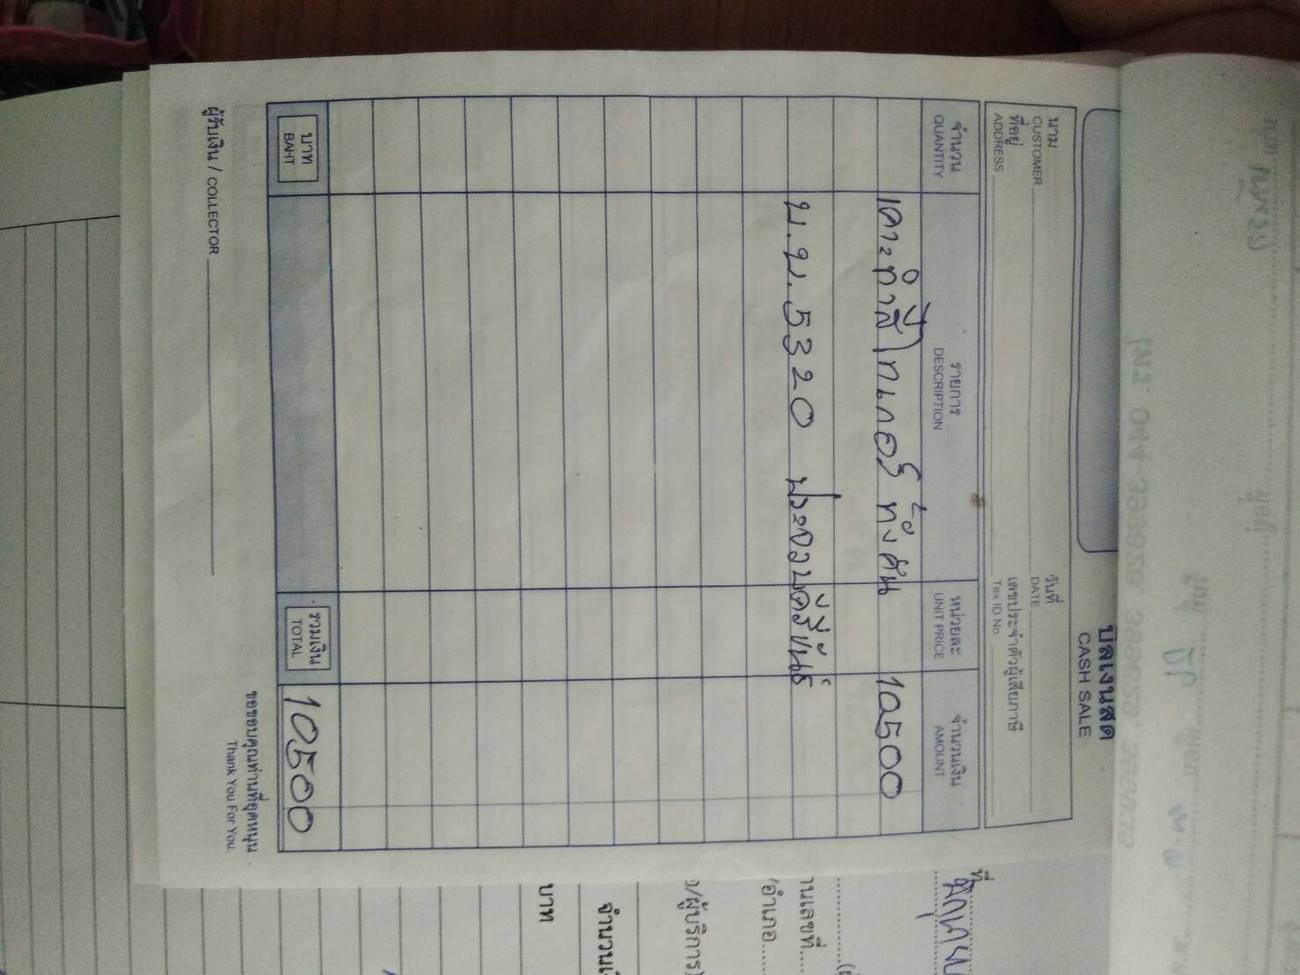 บิลเงินสด
CASH SALE
นาม
CUSTOMER
วันที่
DATE
ที่อยู่
ADDRESS
เลขประจำตัวผู้เสียภาษี
Tex ID No.
จำนวน
QUANTITY
รายการ
DESCRIPTION
หน่วยละ
UNIT PRICE
จำนวนเงิน
AMOUNT
เคาะทำสีไทเกอร์ ทั้งคัน 10500
บ.บ. 5320 ประจวบคีรีขันธ์
บาท
BAHT
รวมเงิน
TOTAL
10500
ขอขอบคุณท่านที่อุดหนุน
Thank You For You.
ผู้รับเงิน / COLLECTOR
ที่
านเลขที่
/อำเภอ
ว/ผู้บริการ)
จำนวนเ
บาท